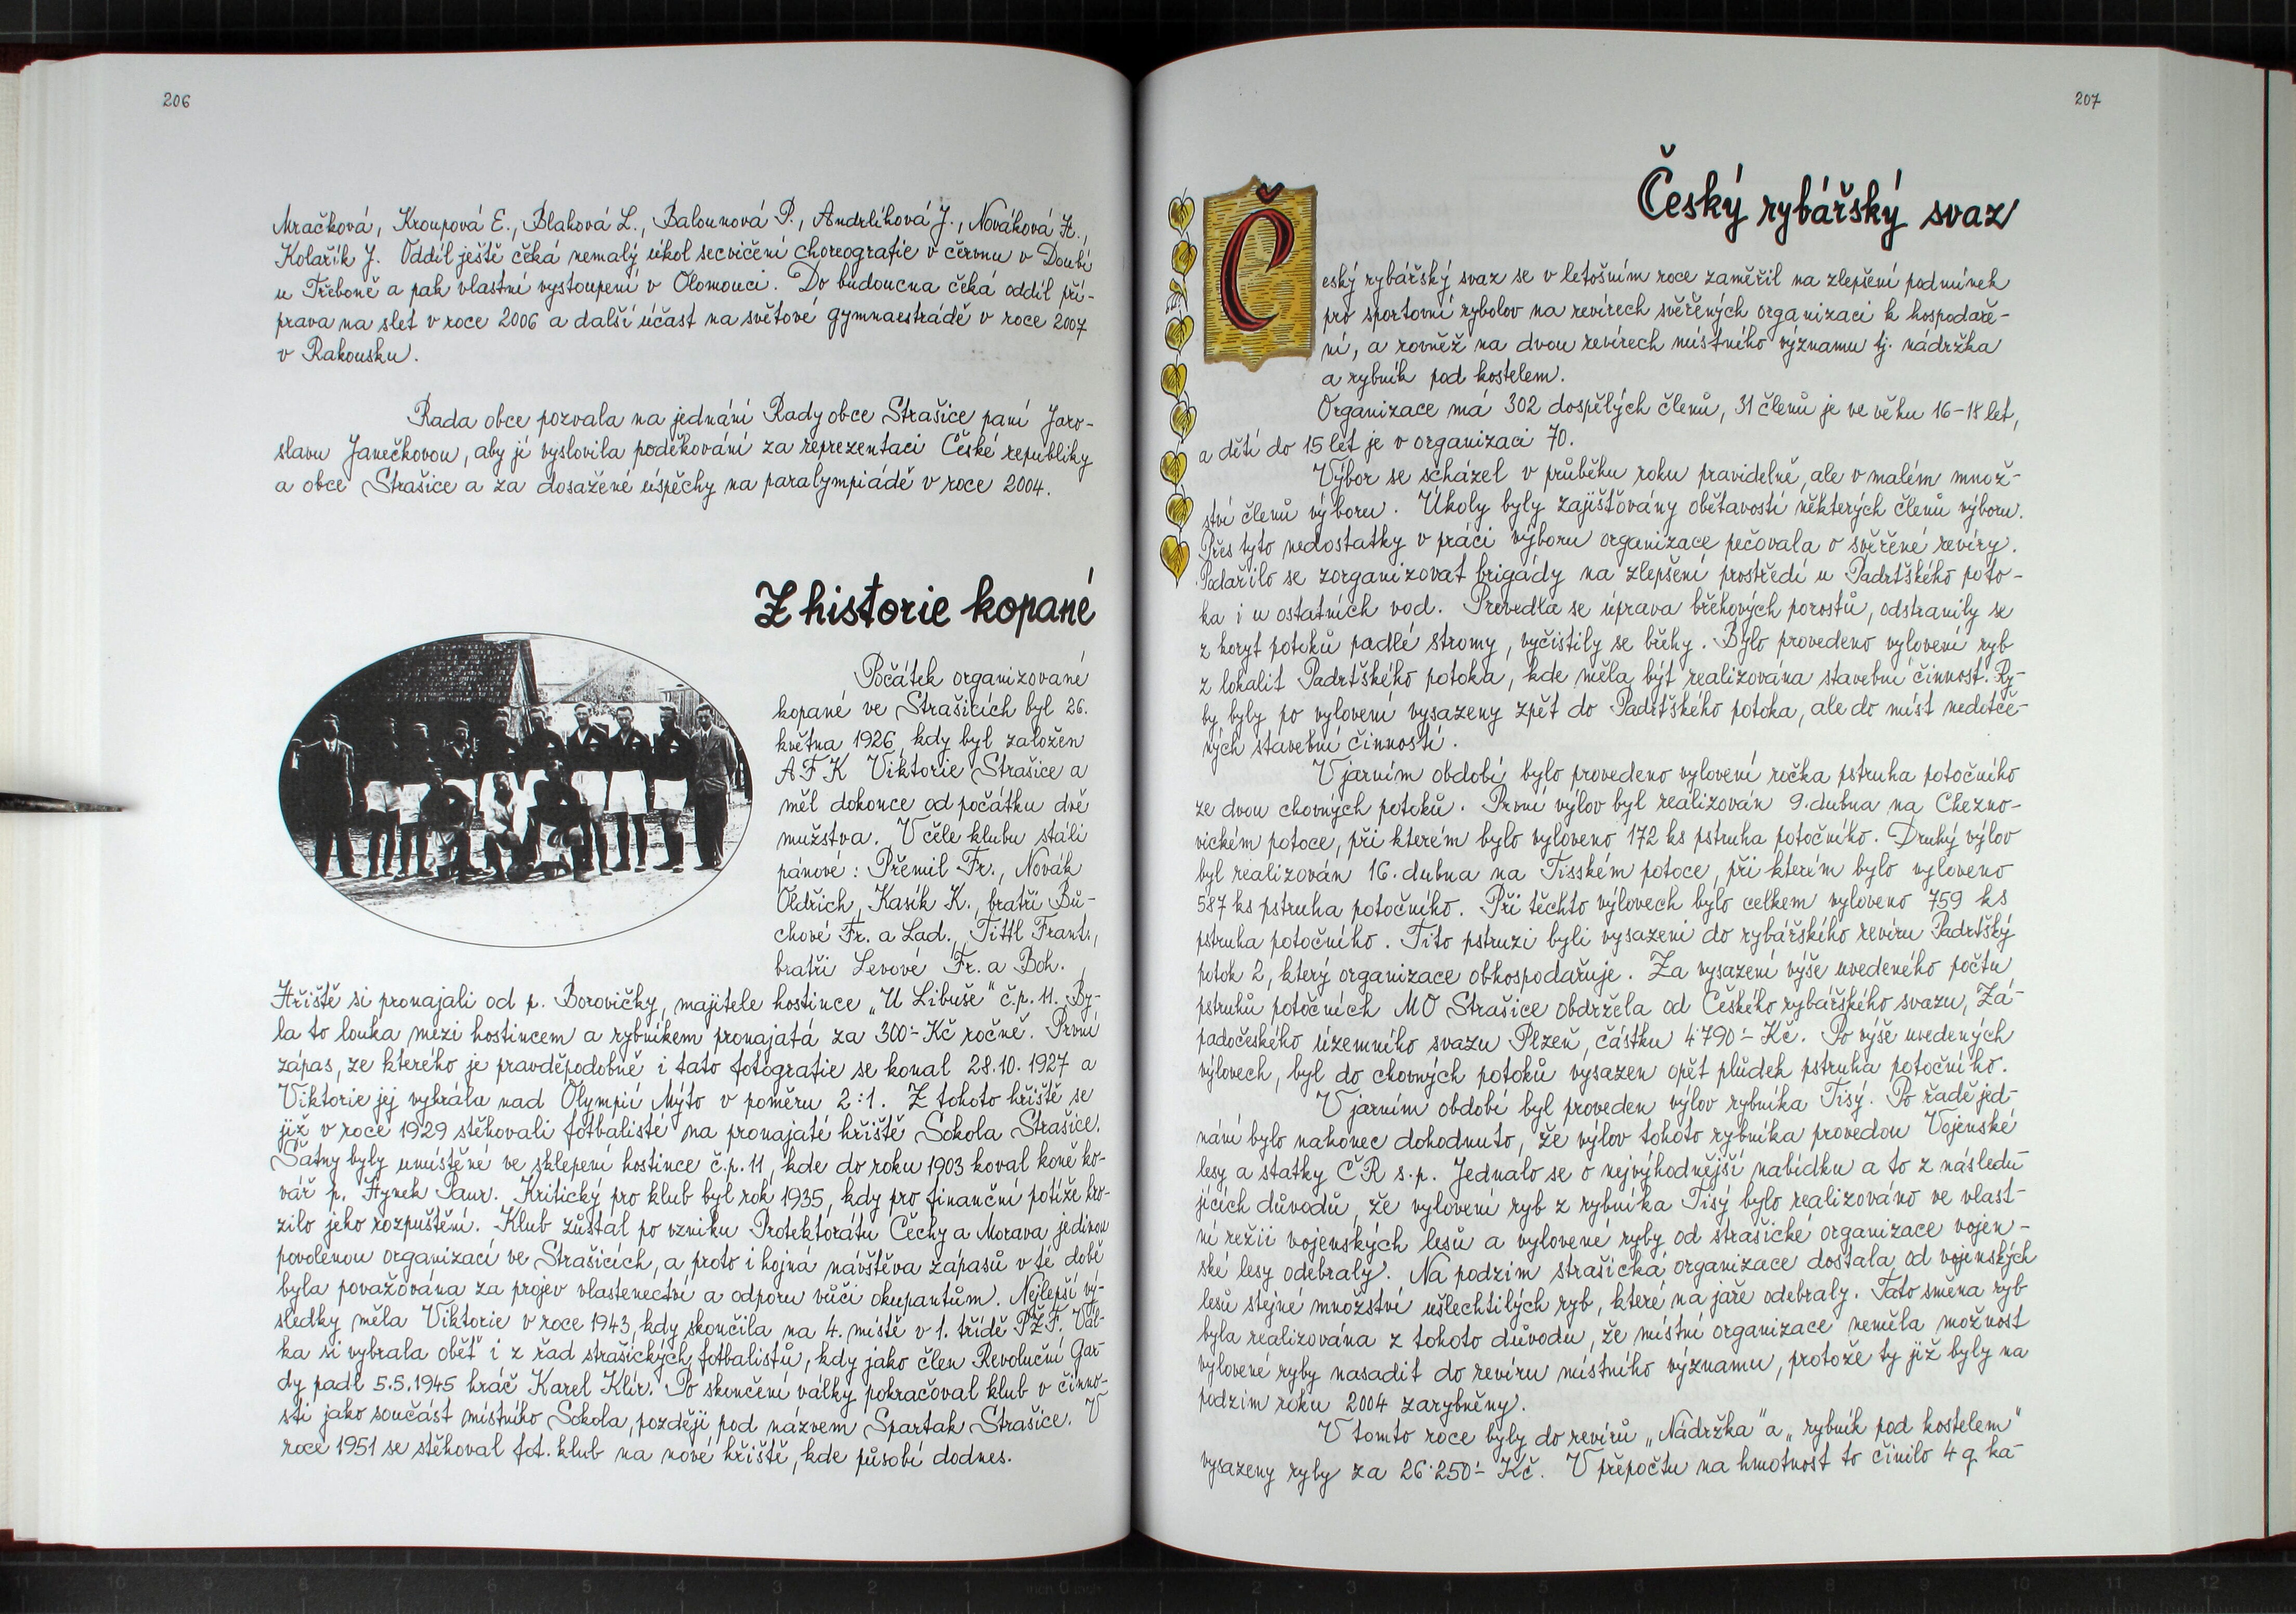 206
Mračková, Kroupová E., Blahová L., Balounová P., Andrlíková J., Nováková H.,
Kolařík J. Oddíl ještě čeká nemalý úkol secvičení choreografie v červnu v Doubí
u Třeboně a pak vlastní vystoupení v Olomouci. Do budoucna čeká oddíl pří-
prava na slet v roce 2006 a další účast na světové gymnaestrádě v roce 2007
v Rakousku.
Rada obce pozvala na jednání Rady obce Strašice paní Jaro-
slavu Janečkovou, aby jí vyslovila poděkování za reprezentaci České republiky
a obce Strašice a za dosažené úspěchy na paralympiádě v roce 2004.
Z historie kopané
Počátek organizované
kopané ve Strašicích byl 26.
května 1926, kdy byl založen
AFK Viktorie Strašice a
měl dokonce od počátku dvě
mužstva. V čele klubu stáli
pánové: Přemil Fr., Novák
Oldřich, Kasík K., bratři Bů-
chové Fr. a Lad., Tittl Frant.,
bratři Levové Fr. a Boh.
Hřiště si pronajali od p. Borovičky, majitele hostince „U Libuše" č.p. 11. By-
la to louka mezi hostincem a rybníkem pronajatá za 300,- Kč ročně. První
zápas, ze kterého je pravděpodobně i tato fotografie se konal 28.10.1927 a
Viktorie jej vyhrála nad Olympií Mýto v poměru 2:1. Z tohoto hřiště se
již v roce 1929 stěhovali fotbalisté na pronajaté hřiště Sokola Strašice.
Šatny byly umístěné ve sklepení hostince č.p. 11, kde do roku 1903 koval koně ko-
vář p. Hynek Paur. Kritický pro klub byl rok 1935, kdy pro finanční potíže hro-
zilo jeho rozpuštění. Klub zůstal po vzniku Protektorátu Čechy a Morava jedinou
povolenou organizací ve Strašicích, a proto i hojná návštěva zápasů v té době
byla považována za projev vlastenectví a odporu vůči okupantům. Nejlepší vý-
sledky měla Viktorie v roce 1943, kdy skončila na 4. místě v 1. třídě PŽF. Vál-
ka si vybrala oběť i z řad strašických fotbalistů, kdy jako člen Revoluční Gar-
dy padl 5.5.1945 hráč Karel Klír. Po skončení války pokračoval klub v činno-
sti jako součást místního Sokola, později pod názvem Spartak Strašice. V
roce 1951 se stěhoval fot. klub na nové hřiště, kde působí dodnes.
207
Český rybářský svaz
Český rybářský svaz se v letošním roce zaměřil na zlepšení podmínek
pro sportovní rybolov na revírech svěřených organizaci k hospodaře-
ní, a rovněž na dvou revírech místního významu tj. nádržka
a rybník pod kostelem.
Organizace má 302 dospělých členů, 31 členů je ve věku 16-18 let,
a dětí do 15 let je v organizaci 70.
Výbor se scházel v průběhu roku pravidelně, ale v malém množ-
ství členů výboru. Úkoly byly zajišťovány obětavostí některých členů výboru.
Přes tyto nedostatky v práci výboru organizace pečovala o svěřené revíry.
Podařilo se zorganizovat brigády na zlepšení prostředí u Padrťského poto-
ka i u ostatních vod. Provedla se úprava břehových porostů, odstranily se
z koryt potoků padlé stromy, vyčistily se břehy. Bylo provedeno vylovení ryb
z lokalit Padrťského potoka, kde měla být realizována stavební činnost. Ry-
by byly po vylovení vysazeny zpět do Padrťského potoka, ale do míst nedotče-
ných stavební činností.
V jarním období bylo provedeno vylovení ročka pstruha potočního
ze dvou chovných potoků. První výlov byl realizován 9. dubna na Chezno-
vickém potoce, při kterém bylo vyloveno 172 ks pstruha potočního. Druhý výlov
byl realizován 16. dubna na Tisském potoce, při kterém bylo vyloveno
587 ks pstruha potočního. Při těchto výlovech bylo celkem vyloveno 759 ks
pstruha potočního. Tito pstruzi byli vysazeni do rybářského revíru Padrťský
potok 2, který organizace obhospodařuje. Za vysazení výše uvedeného počtu
pstruhů potočních MO Strašice obdržela od Českého rybářského svazu, Zá-
padočeského územního svazu Plzeň, částku 4 790,- Kč. Po výše uvedených
výlovech, byl do chovných potoků vysazen opět plůdek pstruha potočního.
V jarním období byl proveden výlov rybníka Tisý. Po řadě jed-
nání bylo nakonec dohodnuto, že výlov tohoto rybníka provedou Vojenské
lesy a statky ČR s.p. Jednalo se o nejvýhodnější nabídku a to z následu-
jících důvodů, že vylovení ryb z rybníka Tisý bylo realizováno ve vlast-
ní režii vojenských lesů a vylovené ryby od strašické organizace vojen-
ské lesy odebraly. Na podzim strašická organizace dostala od vojenských
lesů stejné množství ušlechtilých ryb, které na jaře odebraly. Tato směna ryb
byla realizována z tohoto důvodu, že místní organizace neměla možnost
vylovené ryby nasadit do revíru místního významu, protože ty již byly na
podzim roku 2004 zarybněny.
V tomto roce byly do revírů „Nádržka" a „rybník pod kostelem"
vysazeny ryby za 26 250,- Kč. V přepočtu na hmotnost to činilo 4 q ka-